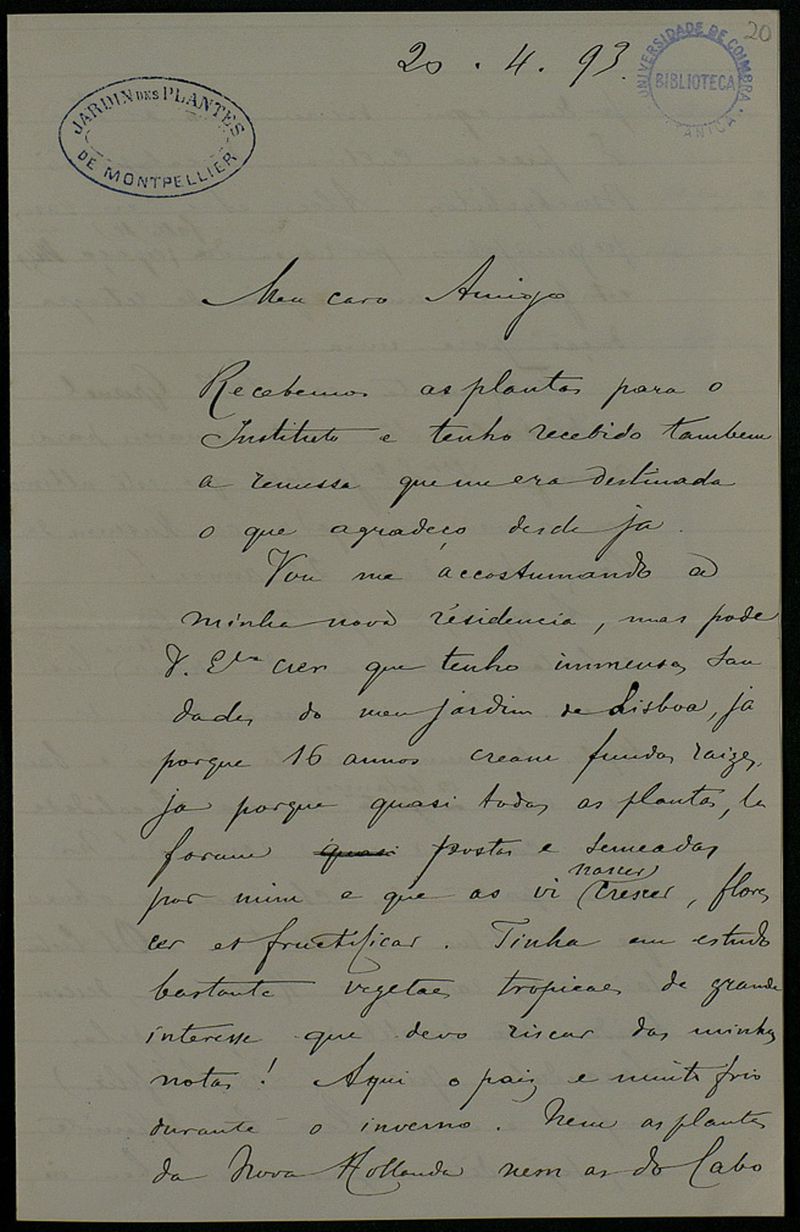 20
20 . 4 . 93.
UNIVERSIDADE DE COIMBRA
BIBLIOTECA
BOTANICA
JARDIN DES PLANTES
DE MONTPELLIER
Meu caro Amigo
Recebemos as plantas para o
Instituto e tenho recebido tambem
a remessa que me era destinada
o que agradeço desde ja.
Vou me accostumando a
minha nova residencia, mas pode
V. Ela crer que tenho immensas sau
dades do meu jardim de Lisboa, ja
porque 16 annos cream fundas raizes,
ja porque quasi todas as plantas, la
foram quasi postas e semeadas
por mim e que as vi nascer crescer, flores
cer et fructificar. Tinha em estudo
bastante vegetaes tropicaes de grande
interesse que devo riscar das minhas
notas! Aqui o paiz e muito frio
durante o inverno. Nem as plantas
da Nova Hollanda nem as do Cabo